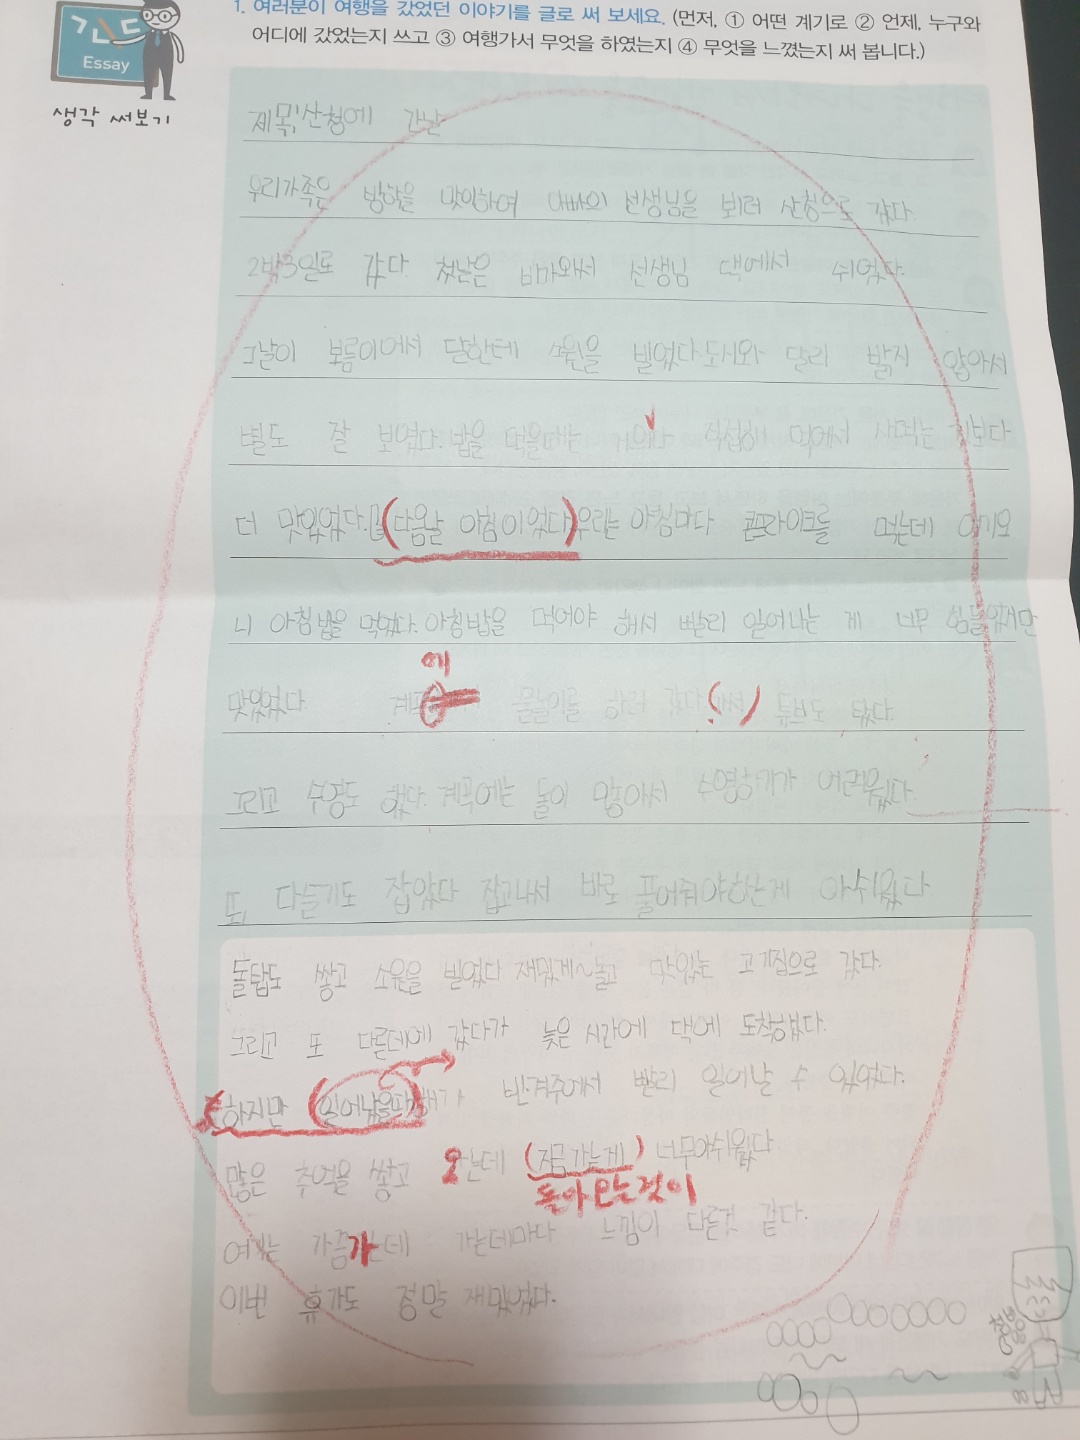 긴드
Essay
생각 써보기
1. 여러분이 여행을 갔었던 이야기를 글로 써 보세요. (먼저, ① 어떤 계기로 ② 언제, 누구와
어디에 갔었는지 쓰고 ③ 여행가서 무엇을 하였는지 ④ 무엇을 느꼈는지 써 봅니다.)
제목: 산청에 간날
우리가족은 방학을 맞이하여 아빠의 선생님을 뵈러 산청으로 갔다.
2박3일로 갔다. 첫날은 비마와서 선생님 댁에서 쉬었다.
그날이 보름이에서 달한테 소원을 빌었다. 도시와 달리 밝지 않아서
별도 잘 보였다. 밥을 먹을때는 직접해 먹에서 사먹는 것보다
더 맛있었다. (다음날 아침이 었다) 우리는 아침마다 콘프라이크를 먹는데 여기오
니 아침밥을 먹었다. 아침밥을 먹어야 해서 빨리 일어나는 게 너무 힘들었지만
맛있었다. 에 물놀이를 하러 갔다. 튜브도 탔다.
그리고 수영도 했다. 계곡에는 돌이 많아서 수영하기가 어려웠다.
또, 다슬기도 잡았다 잡고나서 바로 풀어줘야하는게 아쉬웠다
돌탑도 쌓고 소원을 빌었다 재밌게~놀고 맛있는 고기집으로 갔다.
그리고 또 다른데에 갔다가 늦은 시간에 댁에 도착했다.
하지만 해가 빨리 일어날 수 있었다.
많은 추억을 쌓고 오는데 (지금 가는게) 너무아쉬웠다
돌아 오는것이
여행는 가끔가는데 가는데마다 느낌이 다른것 같다.
이번 휴가도 정말 재밌었다.